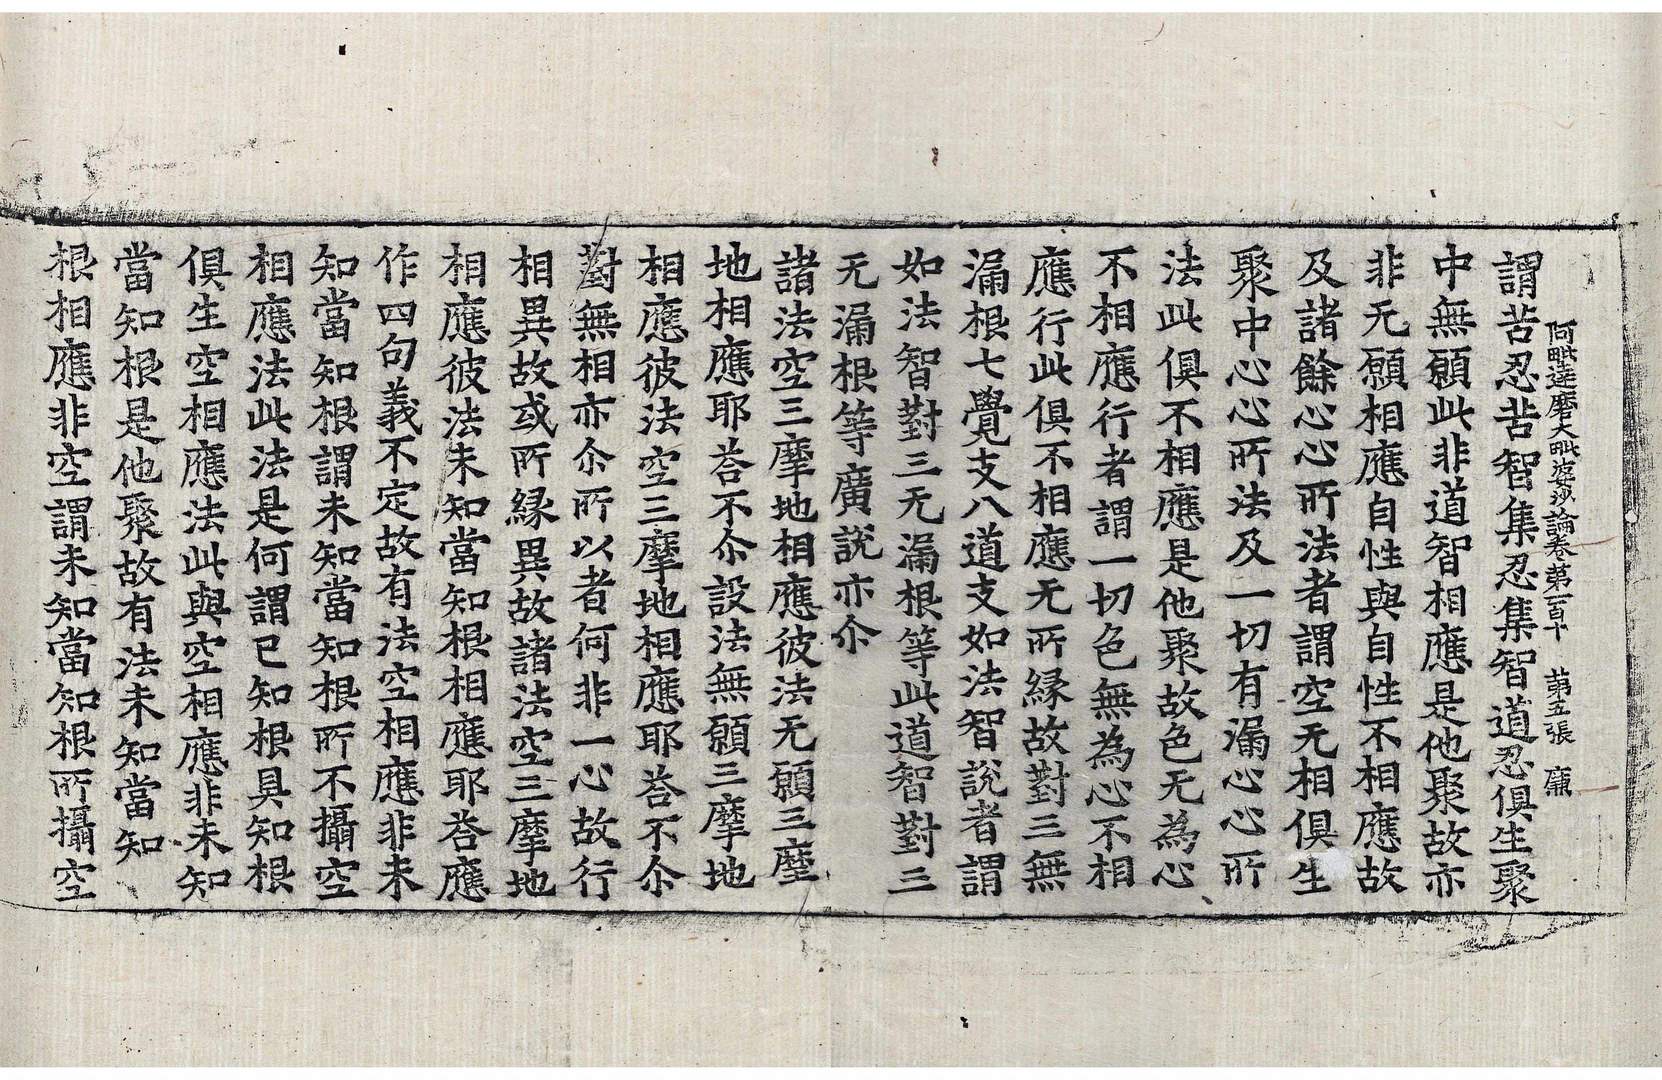 阿毗達磨大毗婆沙論卷第一百十　第五張　廉
謂苦忍苦智集忍集智道忍俱生聚
中無願此非道智相應是他聚故亦
非无願相應自性與自性不相應故
及諸餘心心所法者謂空无相俱生
聚中心心所法及一切有漏心心所
法此俱不相應是他聚故色无為心
不相應行者謂一切色無為心不相
應行此俱不相應无所緣故對三無
漏根七覺支八道支如法智說者謂
如法智對三无漏根等此道智對三
无漏根等廣說亦尒
諸法空三摩地相應彼法无願三摩
地相應耶荅不尒設法無願三摩地
相應彼法空三摩地相應耶荅不尒
對無相亦尒所以者何非一心故行
相異故或所緣異故諸法空三摩地
相應彼法未知當知根相應耶荅應
作四句義不定故有法空相應非未
知當知根謂未知當知根所不攝空
相應法此法是何謂已知根具知根
俱生空相應法此與空相應非未知
當知根是他聚故有法未知當知
根相應非空謂未知當知根所攝空